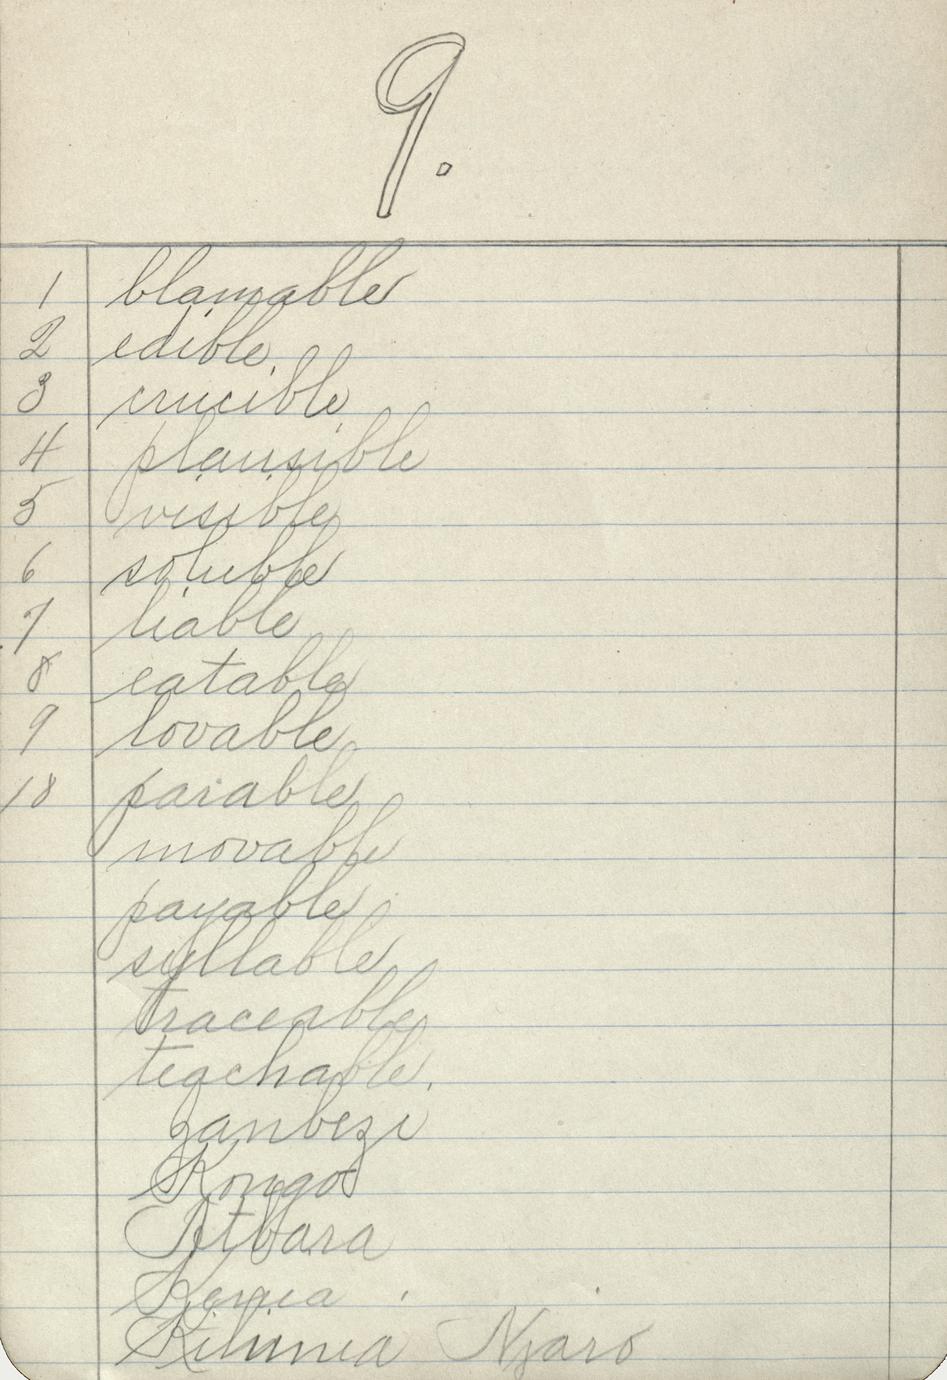 9.
1 blamable
2 edible.
3 crucible
4 plausible
5 visible
6 soluble
7 liable
8 eatable
9 lovable
10 paiable
movable
payable
syllable
traceable
teachable.
Zanbezi
Kongo
Atbara
Kenia
Kilimia Njaro